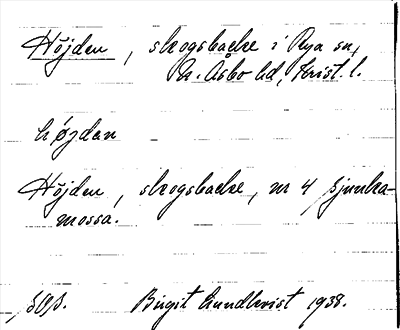 Höjden, skogsbacke i Rya sn,
N. Åsbo hd, Krist. l.
højdan
Höjden, skogsbacke, nr 4 Sjunka-
mossa.
Birgit Lundkvist 1938.